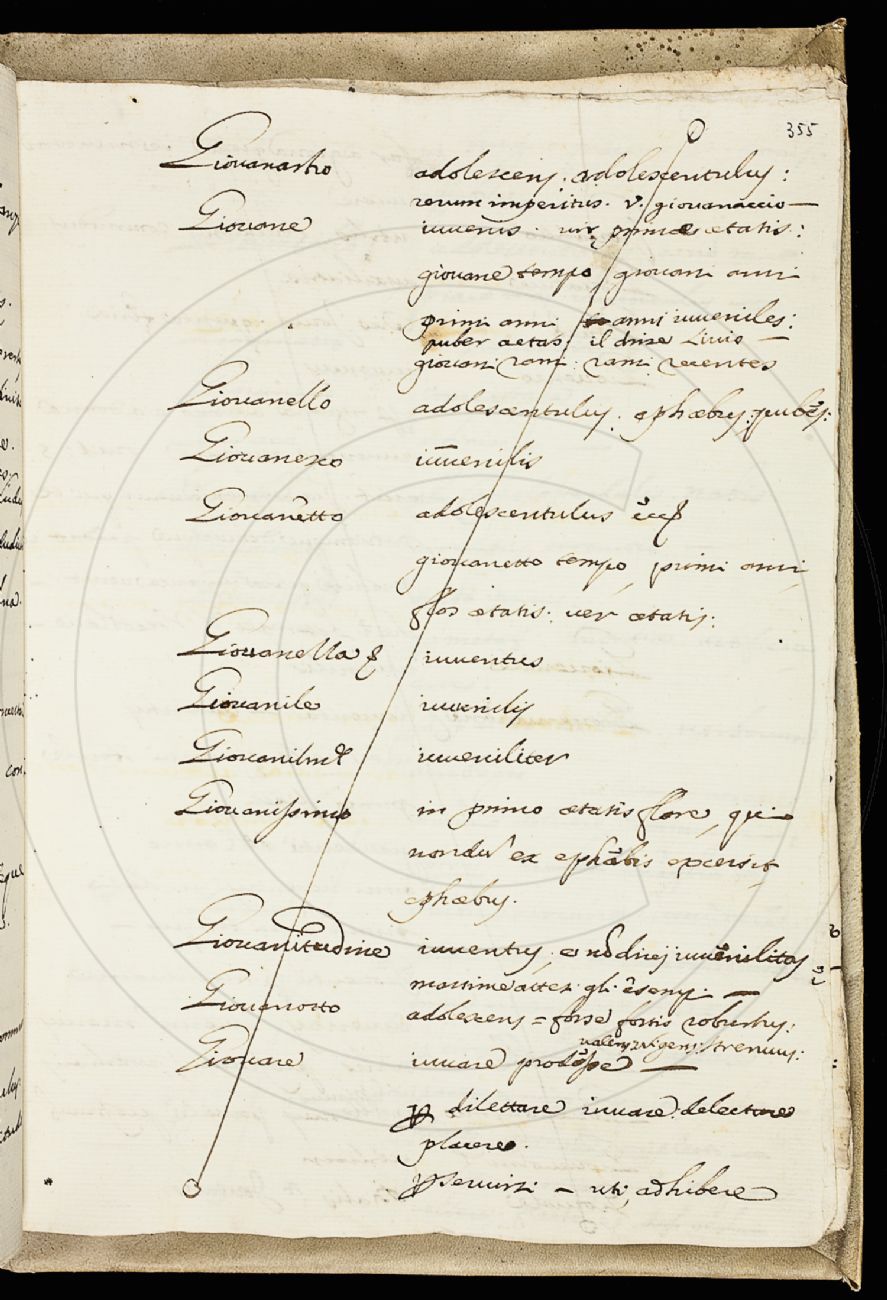 355
Giouanastro adolescens. adolescentulus:
rerum imperitus. v. giouanaccio —
Giouane iuuenis. vir primæ ætatis:
giouane tempo, giouani anni
primi anni anni iuueniles:
puber aetas. il disse Liuio —
giouani rami. rami recentes
Giouanello adolescentulus. ephæbus. pubes:
Giouanesco iuuenilis
Giouanetto adolescentulus
giouanetto tempo, primi anni,
flos ætatis. ver ætatis:
Giouanella iuuentus
Giouanile iuuenilis
Giouanilmte iuueniliter
Giouanissimo in primo ætatis flore, qui
nondu ex ephæbis excessit
ephæbus.
Giouanitudine iuuentus, iuuenilitas
gli
Giouanotto adolescens = forse fortis robustus:
valens strenuus:
Giouare iuuare prodesse —
p dilettare iuuare. delectare
placere.
p seruirsi — uti, adhibere